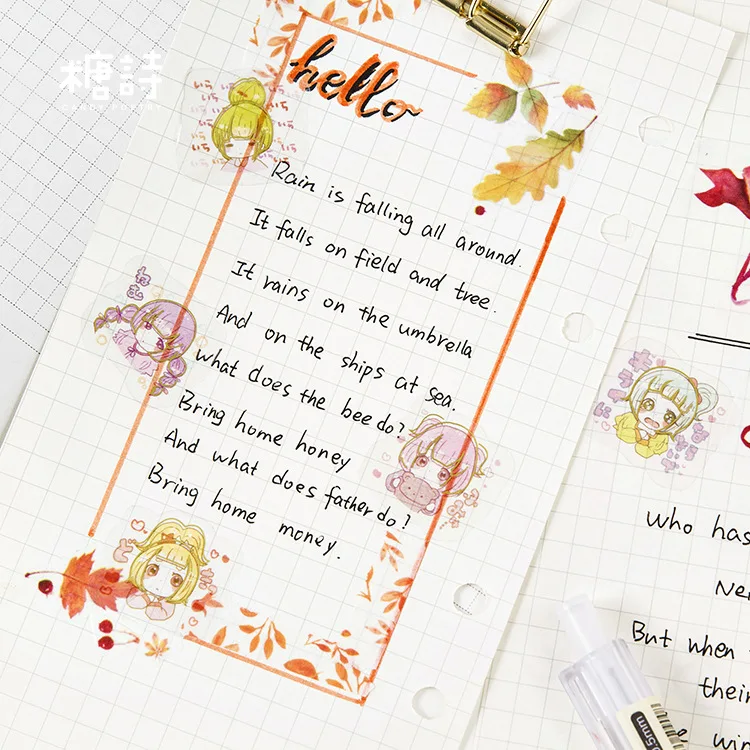 糖詩
hello
Rain is falling all around.
It falls on field and tree.
It rains on the umbrella
And on the ships at sea.
what does the bee do?
Bring home honey
And what does father do?
Bring home money.
who has
Nei
But when
their
win
5mm